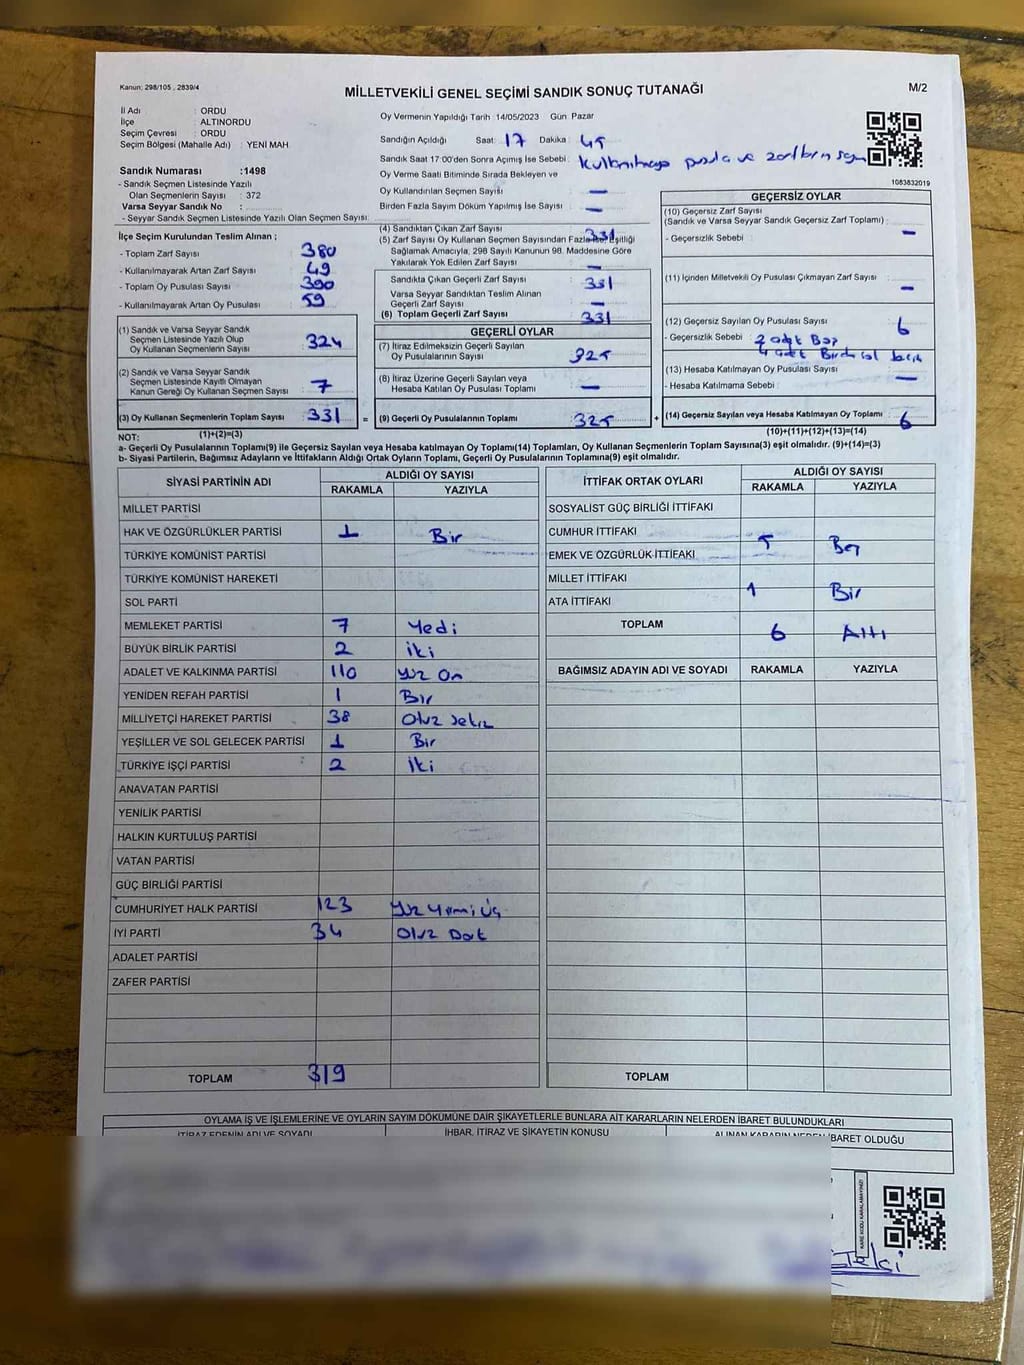 Kanun: 298/105 , 2839/4
MİLLETVEKİLİ GENEL SEÇİMİ SANDIK SONUÇ TUTANAĞI
M/2
İl Adı : ORDU
İlçe ALTINORDU
Seçim Çevresi : ORDU
Seçim Bölgesi (Mahalle Adı) : YENİ MAH.
Oy Vermenin Yapıldığı Tarih 14/05/2023 Gün Pazar
Sandığın Açıldığı Saat: 17 Dakika : 45
Sandık Saat 17:00'den Sonra Açımış İse Sebebi : pusula ve
Oy Verme Saati Bitiminde Sırada Bekleyen ve
Oy Kullandırılan Seçmen Sayısı : —
Birden Fazla Sayım Döküm Yapılmış İse Sayısı : —
1083832019
Sandık Numarası :1498
- Sandık Seçmen Listesinde Yazılı
Olan Seçmenlerin Sayısı : 372
Varsa Seyyar Sandık No :
- Seyyar Sandık Seçmen Listesinde Yazılı Olan Seçmen Sayısı:
İlçe Seçim Kurulundan Teslim Alınan ;
- Toplam Zarf Sayısı : 380
- Kullanılmayarak Artan Zarf Sayısı : 49
- Toplam Oy Pusulası Sayısı : 390
- Kullanılmayarak Artan Oy Pusulası : 59
(1) Sandık ve Varsa Seyyar Sandık
Seçmen Listesinde Yazılı Olup
Oy Kullanan Seçmenlerin Sayısı : 324
(2) Sandık ve Varsa Seyyar Sandık
Seçmen Listesinde Kayıtlı Olmayan
Kanun Gereği Oy Kullanan Seçmen Sayısı : 7
(3) Oy Kullanan Seçmenlerin Toplam Sayısı : 331 =
(4) Sandıktan Çıkan Zarf Sayısı : 331
(5) Zarf Sayısı Oy Kullanan Seçmen Sayısından Fazla İse, Eşitliği
Sağlamak Amacıyla, 298 Sayılı Kanunun 98. Maddesine Göre
Yakılarak Yok Edilen Zarf Sayısı : —
Sandıkta Çıkan Geçerli Zarf Sayısı : 331
Varsa Seyyar Sandıktan Teslim Alınan
Geçerli Zarf Sayısı : —
(6) Toplam Geçerli Zarf Sayısı : 331
GEÇERLİ OYLAR
(7) İtiraz Edilmeksizin Geçerli Sayılan
Oy Pusulalarının Sayısı : 325
(8) İtiraz Üzerine Geçerli Sayılan veya
Hesaba Katılan Oy Pusulası Toplamı : —
(9) Geçerli Oy Pusulalarının Toplamı : 325 +
GEÇERSİZ OYLAR
(10) Geçersiz Zarf Sayısı
(Sandık ve Varsa Seyyar Sandık Geçersiz Zarf Toplamı) :
- Geçersizlik Sebebi : —
(11) İçinden Milletvekili Oy Pusulası Çıkmayan Zarf Sayısı :
—
(12) Geçersiz Sayılan Oy Pusulası Sayısı : 6
- Geçersizlik Sebebi : 2 adet Boş
4 adet
(13) Hesaba Katılmayan Oy Pusulası Sayısı : —
- Hesaba Katılmama Sebebi :
(14) Geçersiz Sayılan veya Hesaba Katılmayan Oy Toplamı : 6
NOT: (1)+(2)=(3) (10)+(11)+(12)+(13)=(14)
a- Geçerli Oy Pusulalarının Toplamı(9) ile Geçersiz Sayılan veya Hesaba katılmayan Oy Toplamı(14) Toplamları, Oy Kullanan Seçmenlerin Toplam Sayısına(3) eşit olmalıdır. (9)+(14)=(3)
b- Siyasi Partilerin, Bağımsız Adayların ve İttifakların Aldığı Ortak Oyların Toplamı, Geçerli Oy Pusulalarının Toplamına(9) eşit olmalıdır.
SİYASİ PARTİNİN ADI ALDIĞI OY SAYISI
RAKAMLA YAZIYLA
MİLLET PARTİSİ
HAK VE ÖZGÜRLÜKLER PARTİSİ 1 Bir
TÜRKİYE KOMÜNİST PARTİSİ
TÜRKİYE KOMÜNİST HAREKETİ
SOL PARTİ
MEMLEKET PARTİSİ 7 Yedi
BÜYÜK BİRLİK PARTİSİ 2 iki
ADALET VE KALKINMA PARTİSİ 110 Yüz On
YENİDEN REFAH PARTİSİ 1 Bir
MİLLİYETÇİ HAREKET PARTİSİ 38 Otuz Sekiz
YEŞİLLER VE SOL GELECEK PARTİSİ 1 Bir
TÜRKİYE İŞÇİ PARTİSİ 2 İki
ANAVATAN PARTİSİ
YENİLİK PARTİSİ
HALKIN KURTULUŞ PARTİSİ
VATAN PARTİSİ
GÜÇ BİRLİĞİ PARTİSİ
CUMHURİYET HALK PARTİSİ 123 Yüz Yirmi Üç
İYİ PARTİ 34 Otuz Dört
ADALET PARTİSİ
ZAFER PARTİSİ
TOPLAM 319
İTTİFAK ORTAK OYLARI ALDIĞI OY SAYISI
RAKAMLA YAZIYLA
SOSYALİST GÜÇ BİRLİĞİ İTTİFAKI
CUMHUR İTTİFAKI 5 Beş
EMEK VE ÖZGÜRLÜK İTTİFAKI
MİLLET İTTİFAKI 1 Bir
ATA İTTİFAKI
TOPLAM 6 Altı
BAĞIMSIZ ADAYIN ADI VE SOYADI RAKAMLA YAZIYLA
TOPLAM
OYLAMA İŞ VE İŞLEMLERİNE VE OYLARIN SAYIM DÖKÜMÜNE DAİR ŞİKAYETLERLE BUNLARA AİT KARARLARIN NELERDEN İBARET BULUNDUKLARI
İTİRAZ EDENİN ADI VE SOYADI İHBAR, İTİRAZ VE ŞİKAYETİN KONUSU ALINAN KARARIN NEDEN İBARET OLDUĞU
KARE KODU KARALAMAYINIZ!